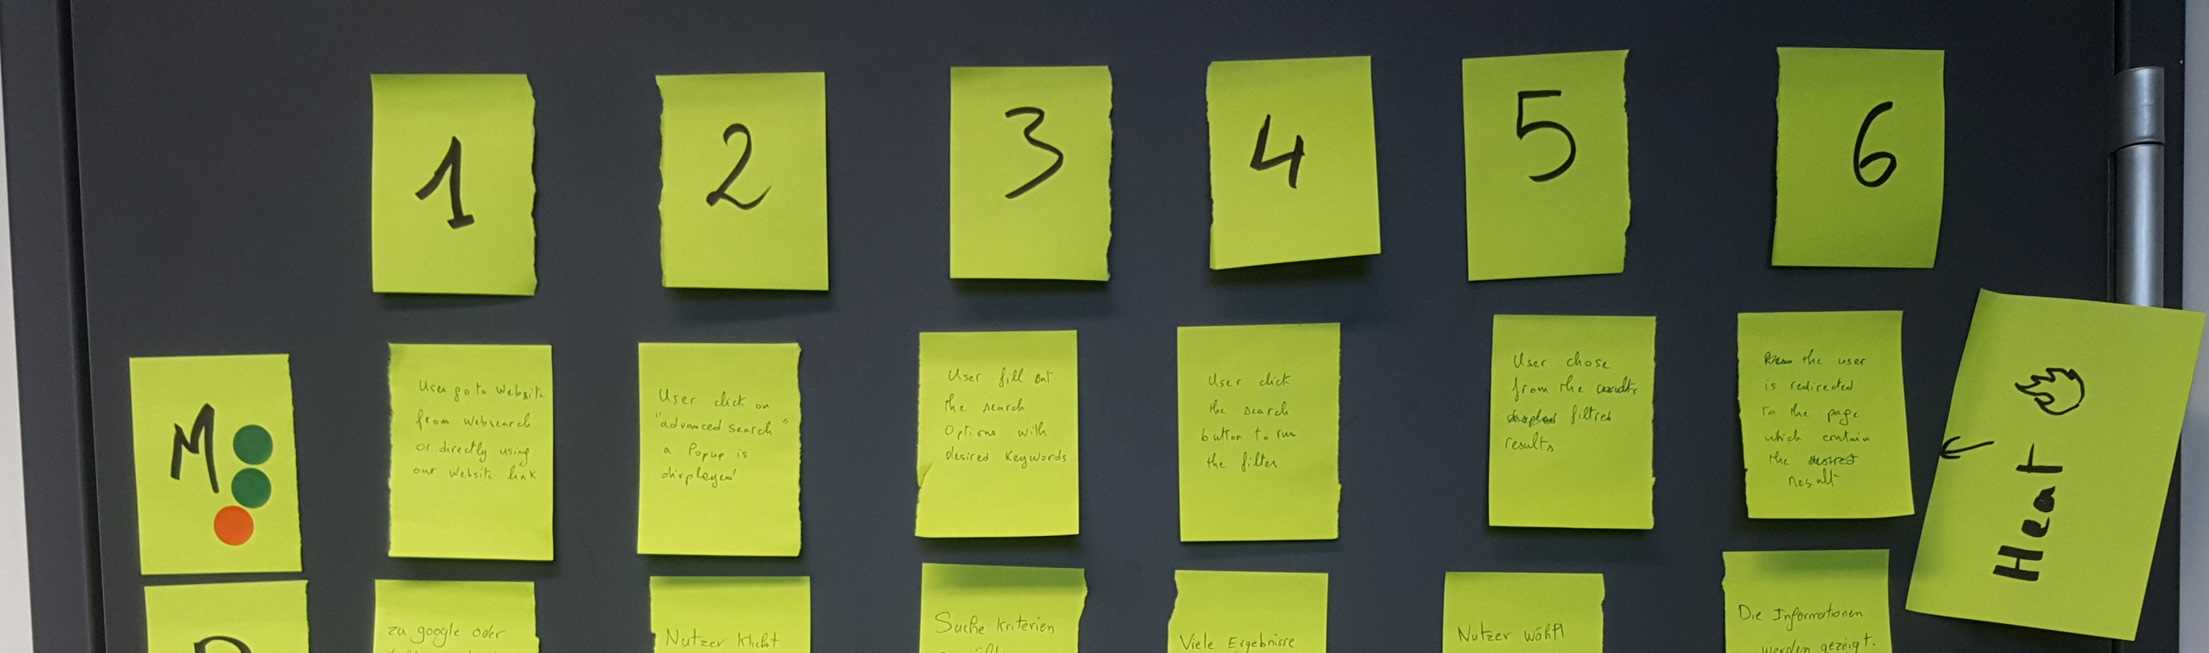 1
2
3
4
5
6
M
User go to website
from websearch
or directly using
our website link
User click on
"advanced search"
a Popup is
displayed
User fill out
the search
Options with
desired Keywords
User click
the search
button to run
the filter
User chose
from the
filtred
results
the user
is redirected
to the page
which contain
the desired
result
Heat
zu google oder
Nutzer klickt
Suche Kriterien
Viele Ergebnisse
Nutzer wählt
Die Informationen
werden gezeigt.